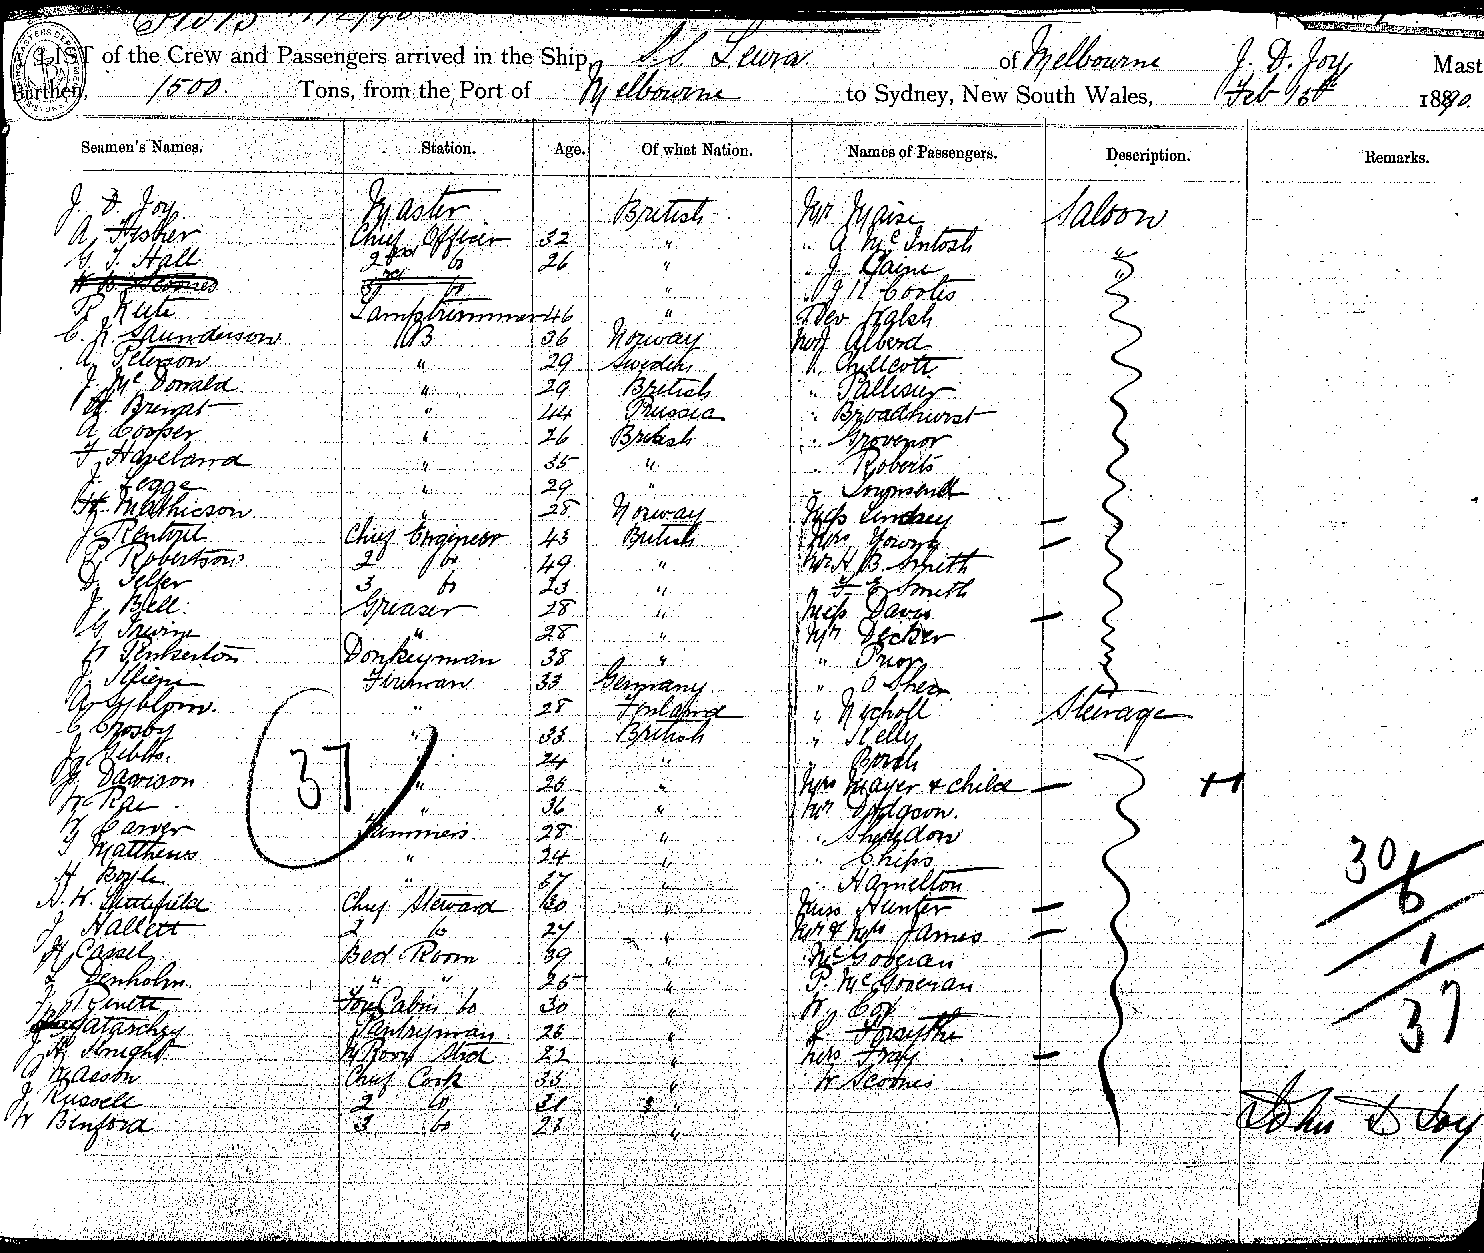 LIST of the Crew and Passengers arrived in the Ship S.S. Leura of Melbourne J. D. Joy Mast
Burthen, 1500 Tons, from the Port of Melbourne to Sydney, New South Wales, Feb 15th 1890.
Seamen's Names. Station. Age. Of what Nation. Names of Passengers. Description. Remarks.
J. D. Joy Master British Mr Maise Saloon
A Fisher Chief Officer 32 " " A McIntosh "
G. T. Hall 2nd Do 26 " " J. Caine "
3rd Do " " J R Cortis
R Kute Lamptrimmer 46 " Walsh
C. R Saunderson AB 36 Norway Alberd
A Peterson " 29 Sweden " Chillcott
J. McDonald " 29 British " Pallisier
" 44 Prussia " Broadhurst
A Cooper " 26 British " Grovenor
F. Haveland " 35 " " Roberts
J. Legge " 29 " " Townsend
H. Mathieson " 28 Norway Miss Lindsey
J Rentoul Chief Engineer 43 British Mrs Young
R Robertson 2 Do 49 " Mr H B Smith
D. Telfer 3 Do 23 " " F E Smith
J. Bell Greaser 28 " Miss Davis
G Irwin " 28 " Mr Decker
Pinkerton Donkeyman 38 " " Prior
J. Fireman 33 Germany " O Shea
" 28 Finland " Nycholl Steerage
C Crosby " 33 British " Kelly
J. Gibbs. " 24 " " Booth
Davison " 26 " Mrs Mayer & Child
W Rae " 36 " Mr Dodgson.
W Carver Trimmers 28 " " Sheddon
T Matthews " 24 " " Chips
H Boyle " 37 " " Hamelton
Littlefield Chief Steward 30 " Miss Hunter
J. Hallett 2 Do 27 " Mr & Mrs James
H Cassel Bed Room 39 " McGoveran
Denholm " " 25 " P. McGoveran
Fore Cabin Do 30 " W Cox
Pantryman 26 " Forsythe
J H Knight M Room Stwd 22 " Mrs Fray
G Masson Chief Cook 35 " W Scoones
J. Russell 2 Do 31 "
W Benford 3 Do 23 "
37
30
6
1
37
John D Joy